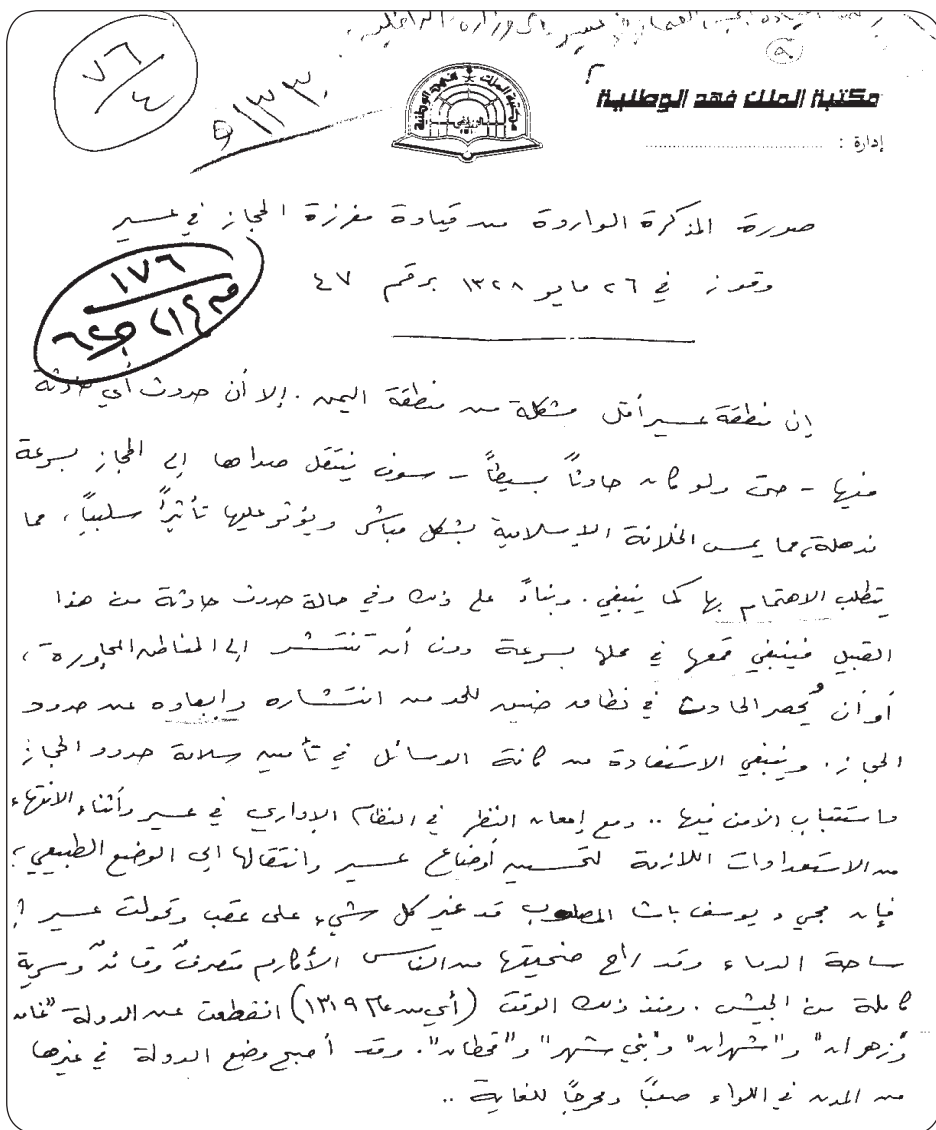 قيادة الجيش العثماني في عسير إلى وزارة الداخلية.
٩
٧٦/٤
٩١٣٣٠
مكتبة الملك فهد الوطنية
إدارة :
صورة المذكرة الواردة من قيادة مفرزة الحجاز في عسير
وقوز في ٢٦ مايو ١٣٢٨ برقم ٤٧
١٧٦
إن منطقة عسير أقل مشكلة من منطقة اليمن. إلا أن حدوث أي حادثة
فيها - حتى ولو كان حادثاً بسيطاً - سوف ينتقل صداها إلى الحجاز بسرعة
مذهلة، مما يمس الخلافة الإسلامية بشكل مباشر ويؤثر عليها تأثيراً سلبياً، مما
يتطلب الاهتمام بها كما ينبغي. وبناءً على ذلك وفي حالة حدوث حادثة من هذا
القبيل فينبغي قمعها في محلها بسرعة دون أن تنتشر إلى المناطق المجاورة،
أو أن يُحصر الحادث في نطاق ضيق للحد من انتشاره وإبعاده عن حدود
الحجاز. وينبغي الاستفادة من كافة الوسائل في تأمين سلامة حدود الحجاز
واستتباب الأمن فيها .. ومع إمعان النظر في النظام الإداري في عسير وأثناء الانتهاء
من الاستعدادات اللازمة لتحسين أوضاع عسير وانتقالها إلى الوضع الطبيعي؛
فإن مجيء يوسف باشا المصلوب قد غير كل شيء على عقب وتحولت عسير إلى
ساحة الدماء وقد راح ضحيتها من الناس الأكارم متصرفٌ وقائدٌ وسرية
كاملة من الجيش. ومنذ ذلك الوقت (أي من عام ١٣١٩) انقطعت عن الدولة "غامد
وزهران" و"شهران" و"بني شهر" و"قحطان". وقد أصبح وضع الدولة في غيرها
من المدن في اللواء صعباً ومحرجاً للغاية ..